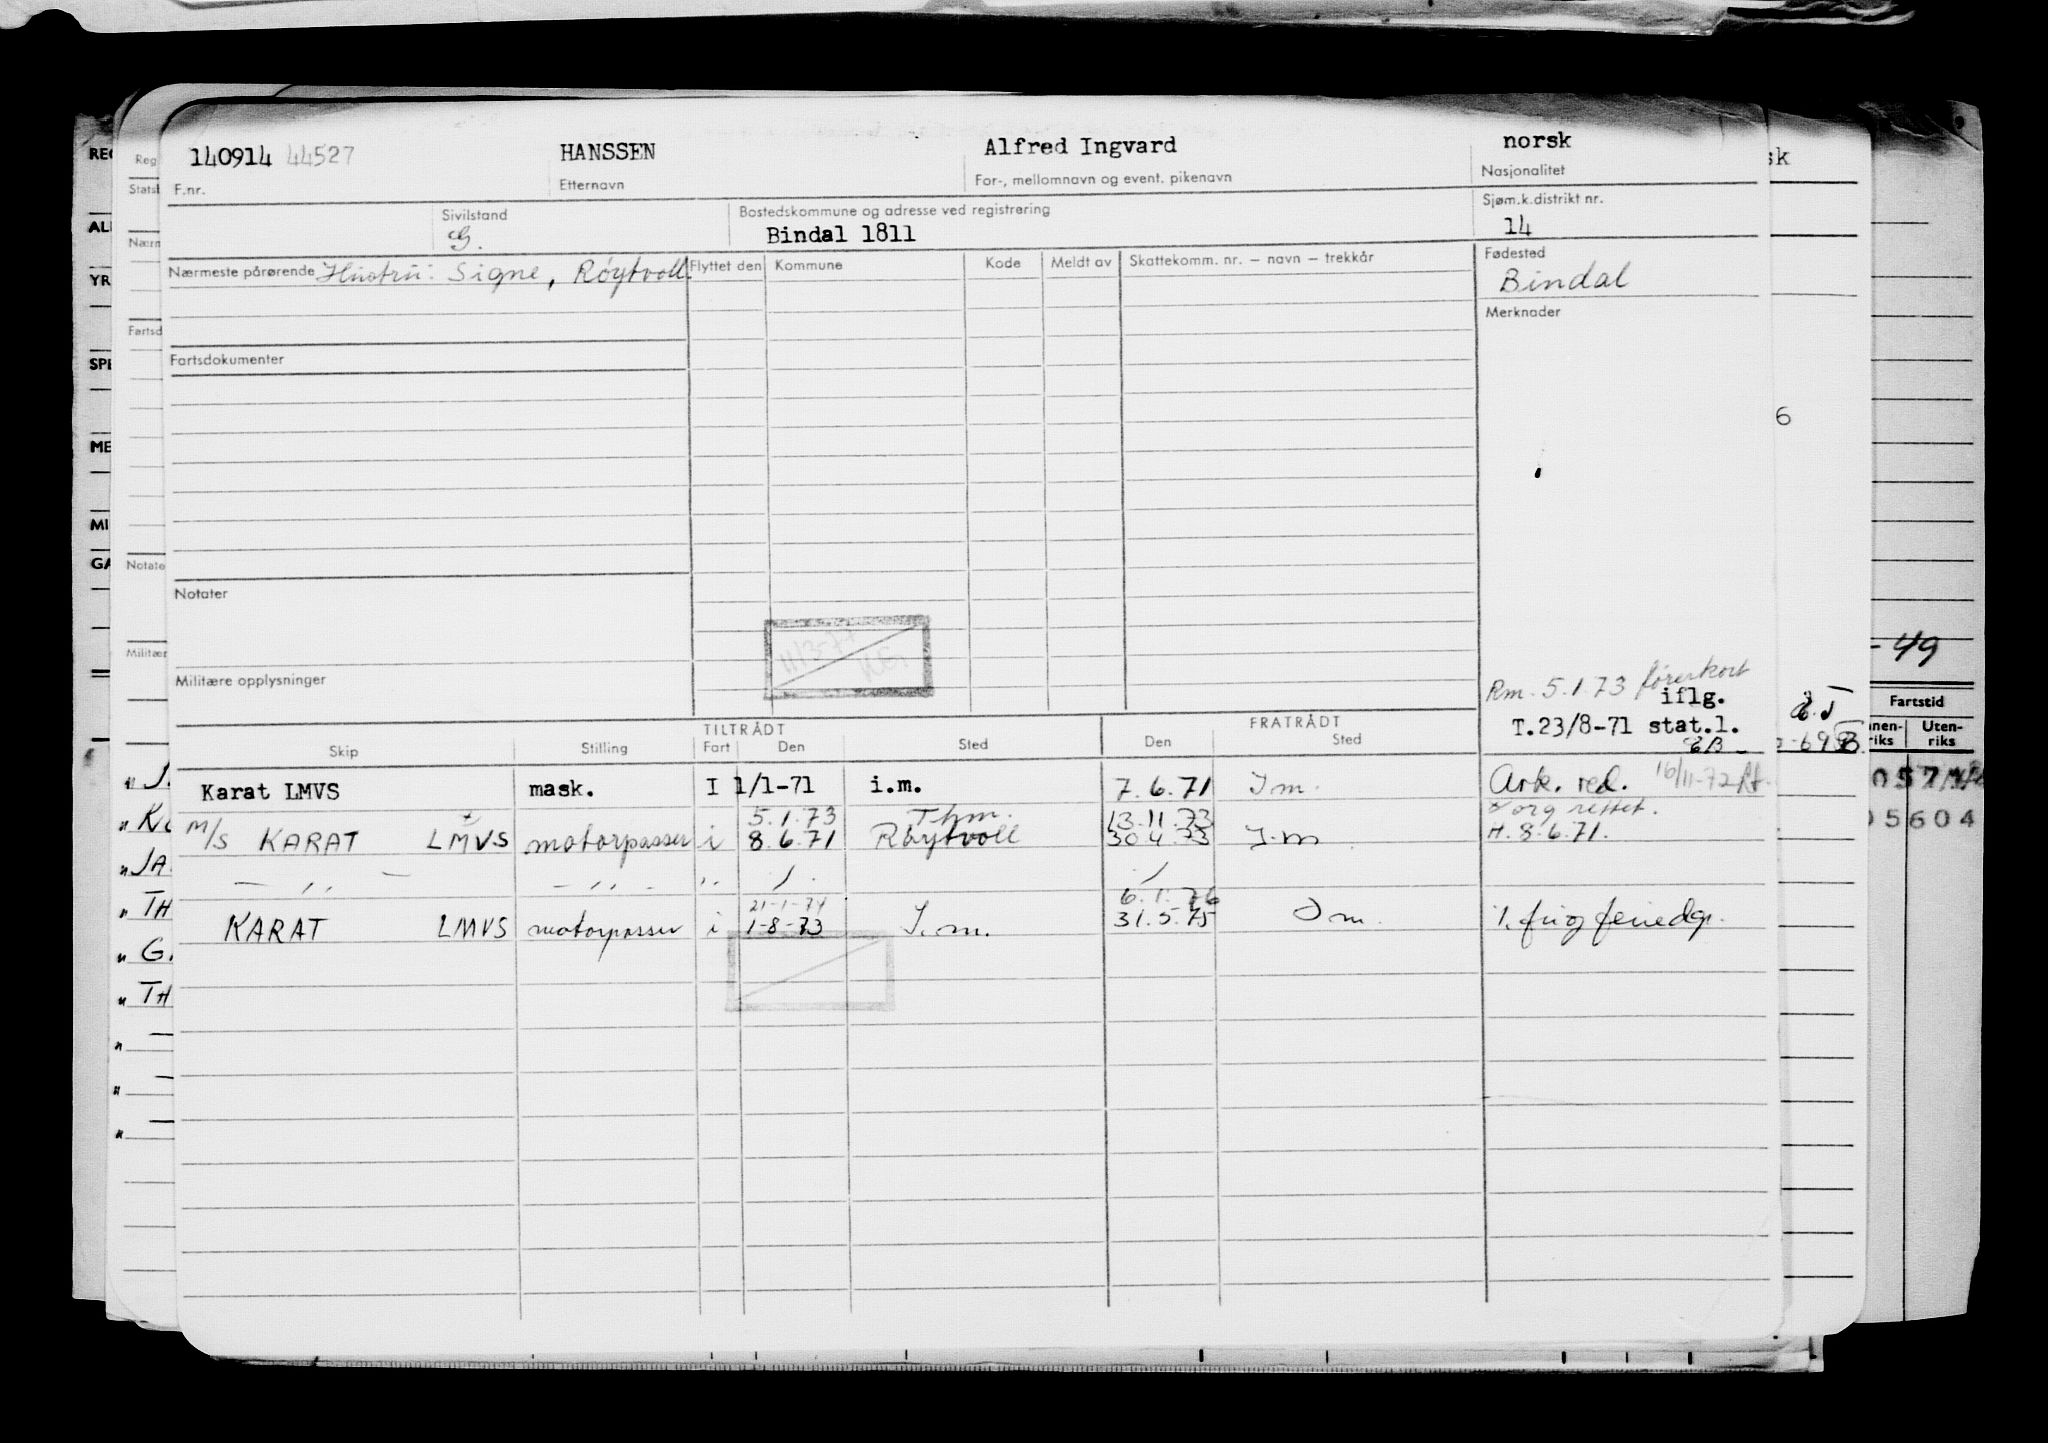 140914 44527 HANSSEN Alfred Ingvard norsk
F.nr. Etternavn For-, mellomnavn og event. pikenavn Nasjonalitet
Sivilstand Bostedskommune og adresse ved registrering Sjøm.k.distrikt nr.
G. Bindal 1811 14
Nærmeste pårørende Hustru: Signe, Röytvoll. Flyttet den Kommune Kode Meldt av Skattekomm. nr. – navn – trekkår Fødested
Bindal
Merknader
Fartsdokumenter
6
Notater
11/3-77
- 49
Militære opplysninger
Rm. 5.1.73 førerkort
iflg.
T.23/8-71 stat.l.
EB
Fartstid
Uten-
riks
TILTRÅDT FRATRÅDT
Skip Stilling Fart Den Sted Den Sted
Karat LMVS mask. I 1/1-71 i.m. 7.6.71 I m. Ark. red. 16/11-72
5.1.73 Thm. 13.11.73 org rettet.
M/S KARAT LMVS motorpasser i 8.6.71 Röytvoll 30.4.73 I.m H. 8.6.71.
— ,, — — ,, — ,,
21-1-74 6.1.76
KARAT LMVS motorpasser i 1-8-73 I.m. 31.5.75 I m. % fri og feriedg.
05604